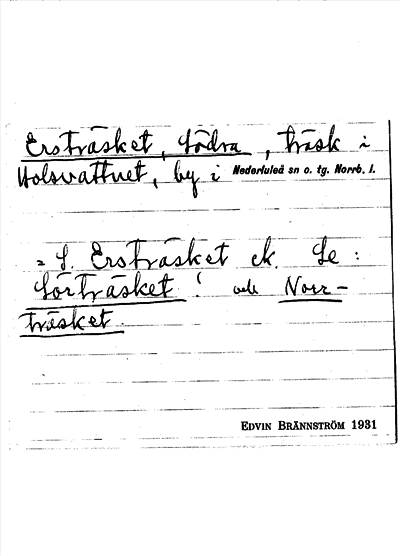 Ersträsket, Södra, träsk i
Holsvattnet, by i Nederluleå sn o. tg. Norrb. l.
= S. Ersträsket ek. Se :
Sörträsket ! och Norr-
träsket.
EDVIN BRÄNNSTRÖM 1931